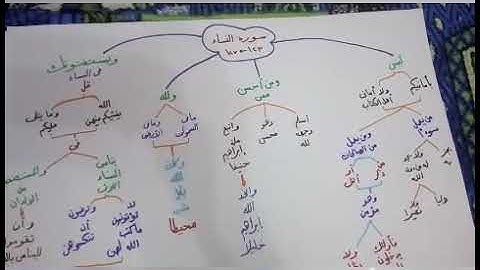 سورة النساء
١٢٣-١٢٧
ليس
بأمانيكم
ولا أماني
أهل الكتاب
من يعمل
سوءا
يجز
به
ولا يجد
له
الله
وليا
ولا
نصيرا
ومن يعمل
من الصالحات
من
ذكر
أو
أنثى
وهو
مؤمن
فأولئك
يدخلون
ولا
ومن أحسن
ممن
أسلم
وجهه
لله
وهو
محسن
واتبع
ملة
إبراهيم
حنيفا
واتخذ
الله
إبراهيم
خليلا
ولله
مافي
السموت
ومافي
الأرض
وكان
الله
بكل
شيء
محيطا
ويستفتونك
في النساء
قل
الله
يفتيكم فيهن
وما يتلى
عليكم
في
يتامى
النساء
التي
لا
تؤتونهن
ما كتب
الله
لهن
وترغبون
أن
تنكحوهن
والمستضعفين
من
الولدان
وأن
تقوموا
لليتامى